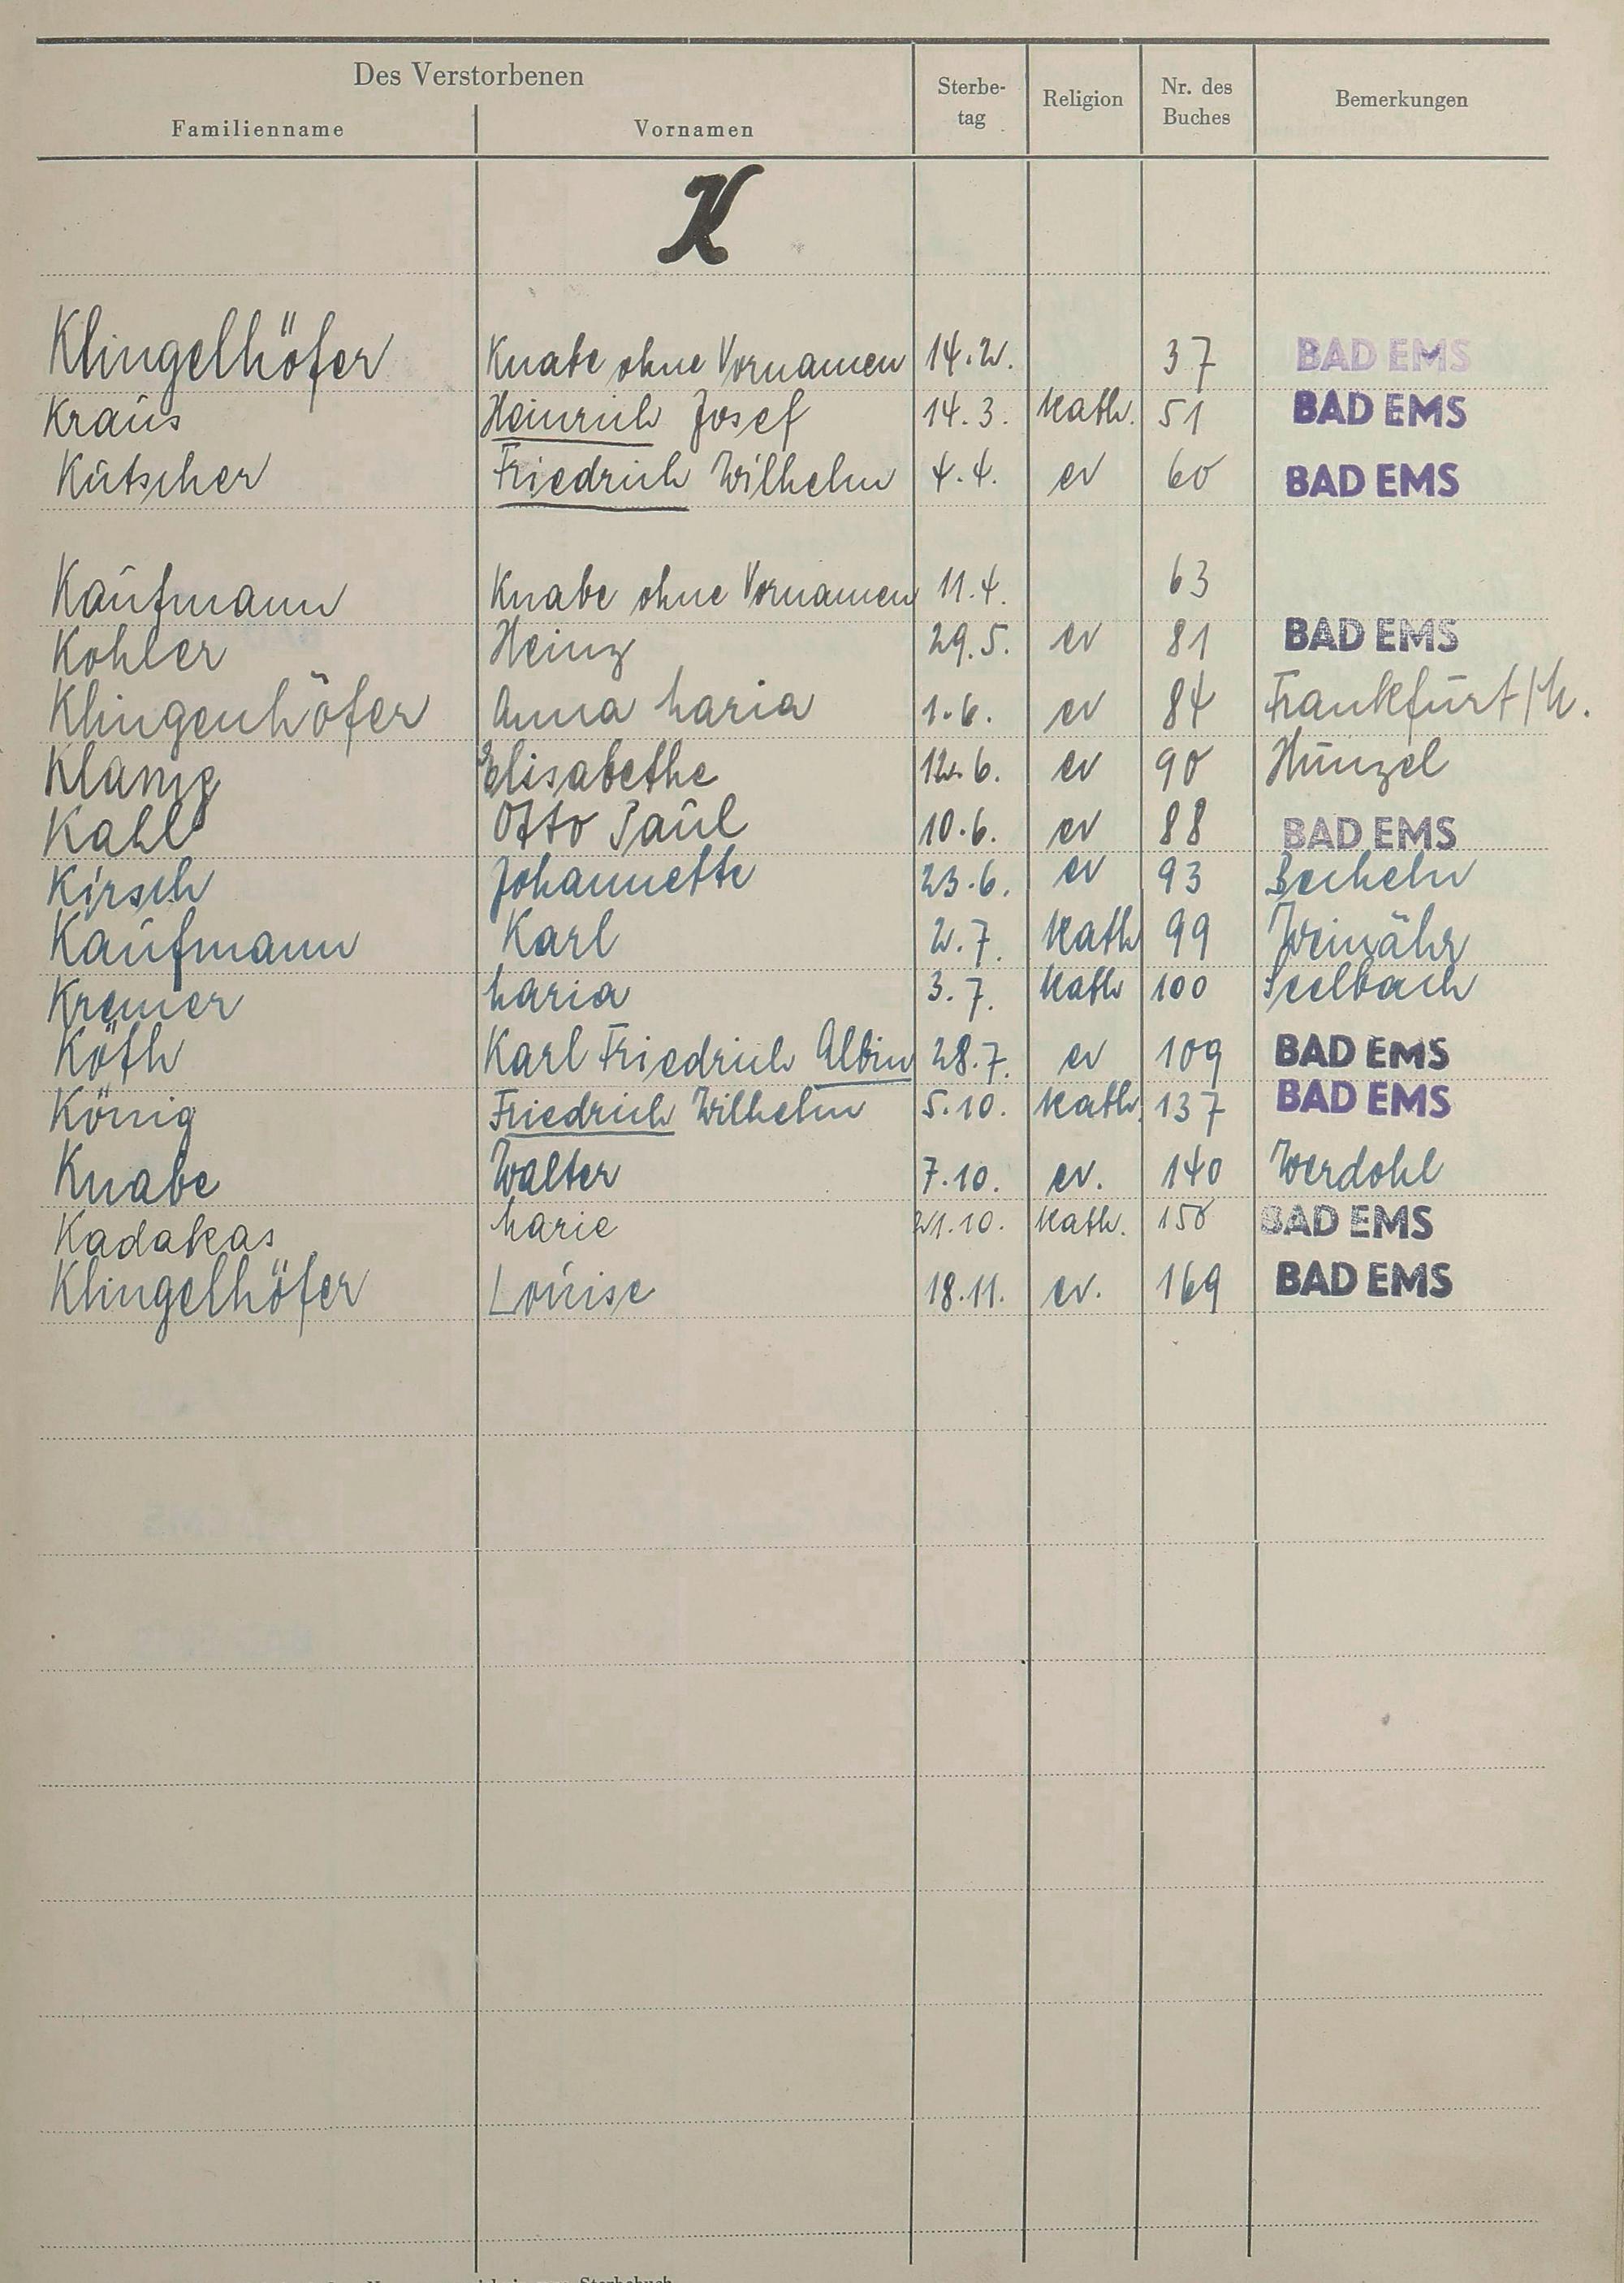 Des Verstorbenen
Familienname Vornamen Sterbe-tag Religion Nr. des Buches Bemerkungen
K
Klingelhöfer Knabe ohne Vornamen 14.2. 37 BAD EMS
Kraus Heinrich Josef 14.3. Kath. 51 BAD EMS
Kutscher Friedrich Wilhelm 4.4. ev 60 BAD EMS
Kaufmann Knabe ohne Vornamen 11.4. 63
Kohler Heinz 29.5. ev 81 BAD EMS
Klingenhöfer Anna Maria 1.6. ev 84 Frankfurt/M.
Elisabethe 12.6. ev 90
Kahl Otto Paul 10.6. ev 88 BAD EMS
Kirsch Johannette 23.6. ev 93 Becheln
Kaufmann Karl 2.7. Kath 99 Weinähr
Kremer Maria 3.7. Kath 100 Seelbach
Köth Karl Friedrich Albin 28.7. ev 109 BAD EMS
König Friedrich Wilhelm 5.10. Kath. 137 BAD EMS
Knabe Walter 7.10. ev. 140 Werdohl
Kadakas Marie 21.10. Kath. 150 BAD EMS
Klingelhöfer Louise 18.11. ev. 169 BAD EMS